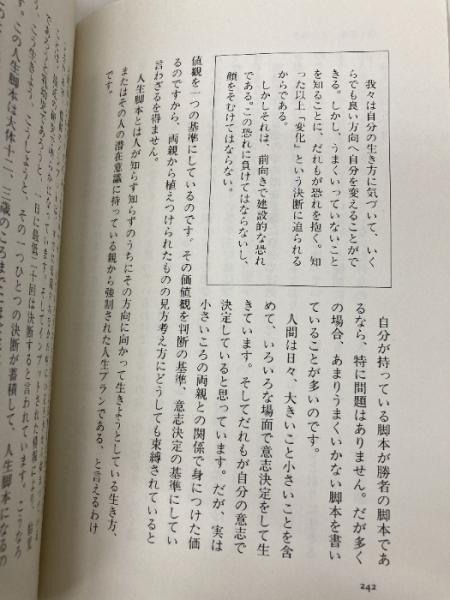 我々は自分の生き方に気づいて、いく
らでも良い方向へ自分を変えることがで
きる。しかし、うまくいっていないこと
を知ることに、だれもが恐れを抱く。知
った以上「変化」という決断に迫られる
からである。
しかしそれは、前向きで建設的な恐れ
である。この恐れに負けてはならないし、
顔をそむけてはならない。
自分が持っている脚本が勝者の脚本であ
るなら、特に問題はありません。だが多く
の場合、あまりうまくいかない脚本を書い
ていることが多いのです。
人間は日々、大きいこと小さいことを含
めて、いろいろな場面で意志決定をして生
きています。そしてだれもが自分の意志で
決定していると思っています。だが、実は
小さいころの両親との関係で身につけた価
値観を一つの基準にしているのです。その価値観を判断の基準、意志決定の基準にしてい
るのですから、両親から植えつけられたものの見方考え方にどうしても束縛されていると
言わざるを得ません。
人生脚本とは人が知らず知らずのうちにその方向に向かって生きようとしている生き方、
またはその人の潜在意識に持っている親から強制された人生プランである、と言えるわけ
です。
この人生脚本は大体十二、三歳のころまでには
こう生きよう、こうしようと、その一つひとつの決断が蓄積して、人生脚本になるの
であろうと、一日に最低二十回は決断すると言われています。こうなろ
242